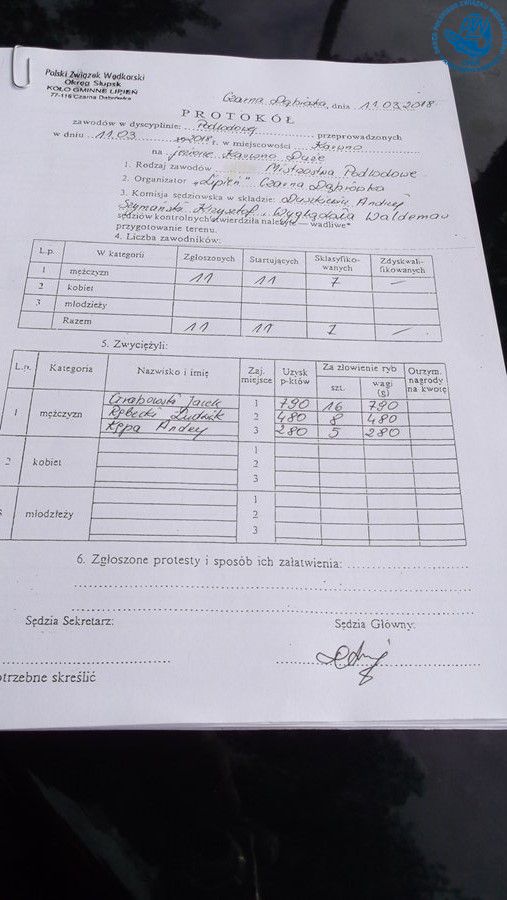 Polski Związek Wędkarski
Okręg Słupsk
KOŁO GMINNE LIPIEŃ
77-116 Czarna Dąbrówka
Czarna Dąbrówka, dnia 11.03.2018.
PROTOKÓŁ
zawodów w dyscyplinie: Podlodowej przeprowadzonych
w dniu 11.03 2018 r. w miejscowości Karwno
na jeziorze Karwno Duże
1. Rodzaj zawodów Mistrzostwa Podlodowe
2. Organizator "Lipień" Czarna Dąbrówka
3. Komisja sędziowska w składzie: Andrzej
Szymański Krzysztof i Waldemar
sędziów kontrolnych stwierdziła należyte — wadliwe*
przygotowanie terenu.
4. Liczba zawodników:
L.p. W kategorii Zgłoszonych Startujących Sklasyfikowanych Zdyskwalifikowanych
1 mężczyzn 11 11 7 —
2 kobiet
3 młodzieży
Razem 11 11 7 —
5. Zwyciężyli:
L.p. Kategoria Nazwisko i imię Zaj. miejsce Uzysk p-któw Za złowienie ryb szt. wagi (g) Otrzym. nagrody na kwotę
1 mężczyzn Grabowski Jacek 1 790 16 790
Rębecki Ludwik 2 480 8 480
Kępa Andrzej 3 280 5 280
2 kobiet 1
2
3
młodzieży 1
2
3
6. Zgłoszone protesty i sposób ich załatwienia:
Sędzia Sekretarz: Sędzia Główny:
otrzebne skreślić